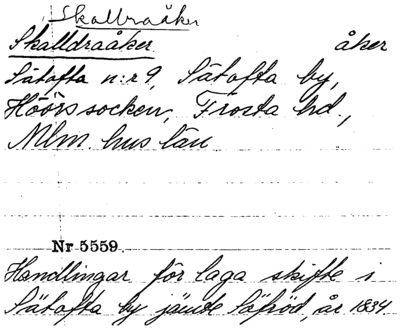 Skallbraåker
Skalldraåker åker
Sätofta n:r 9, Sätofta by,
Höörs socken, Frosta hd.,
Mlm. hus län
Nr 5559.
Handlingar för laga skifte i
Sätofta by jämte Säfröd, år 1834.